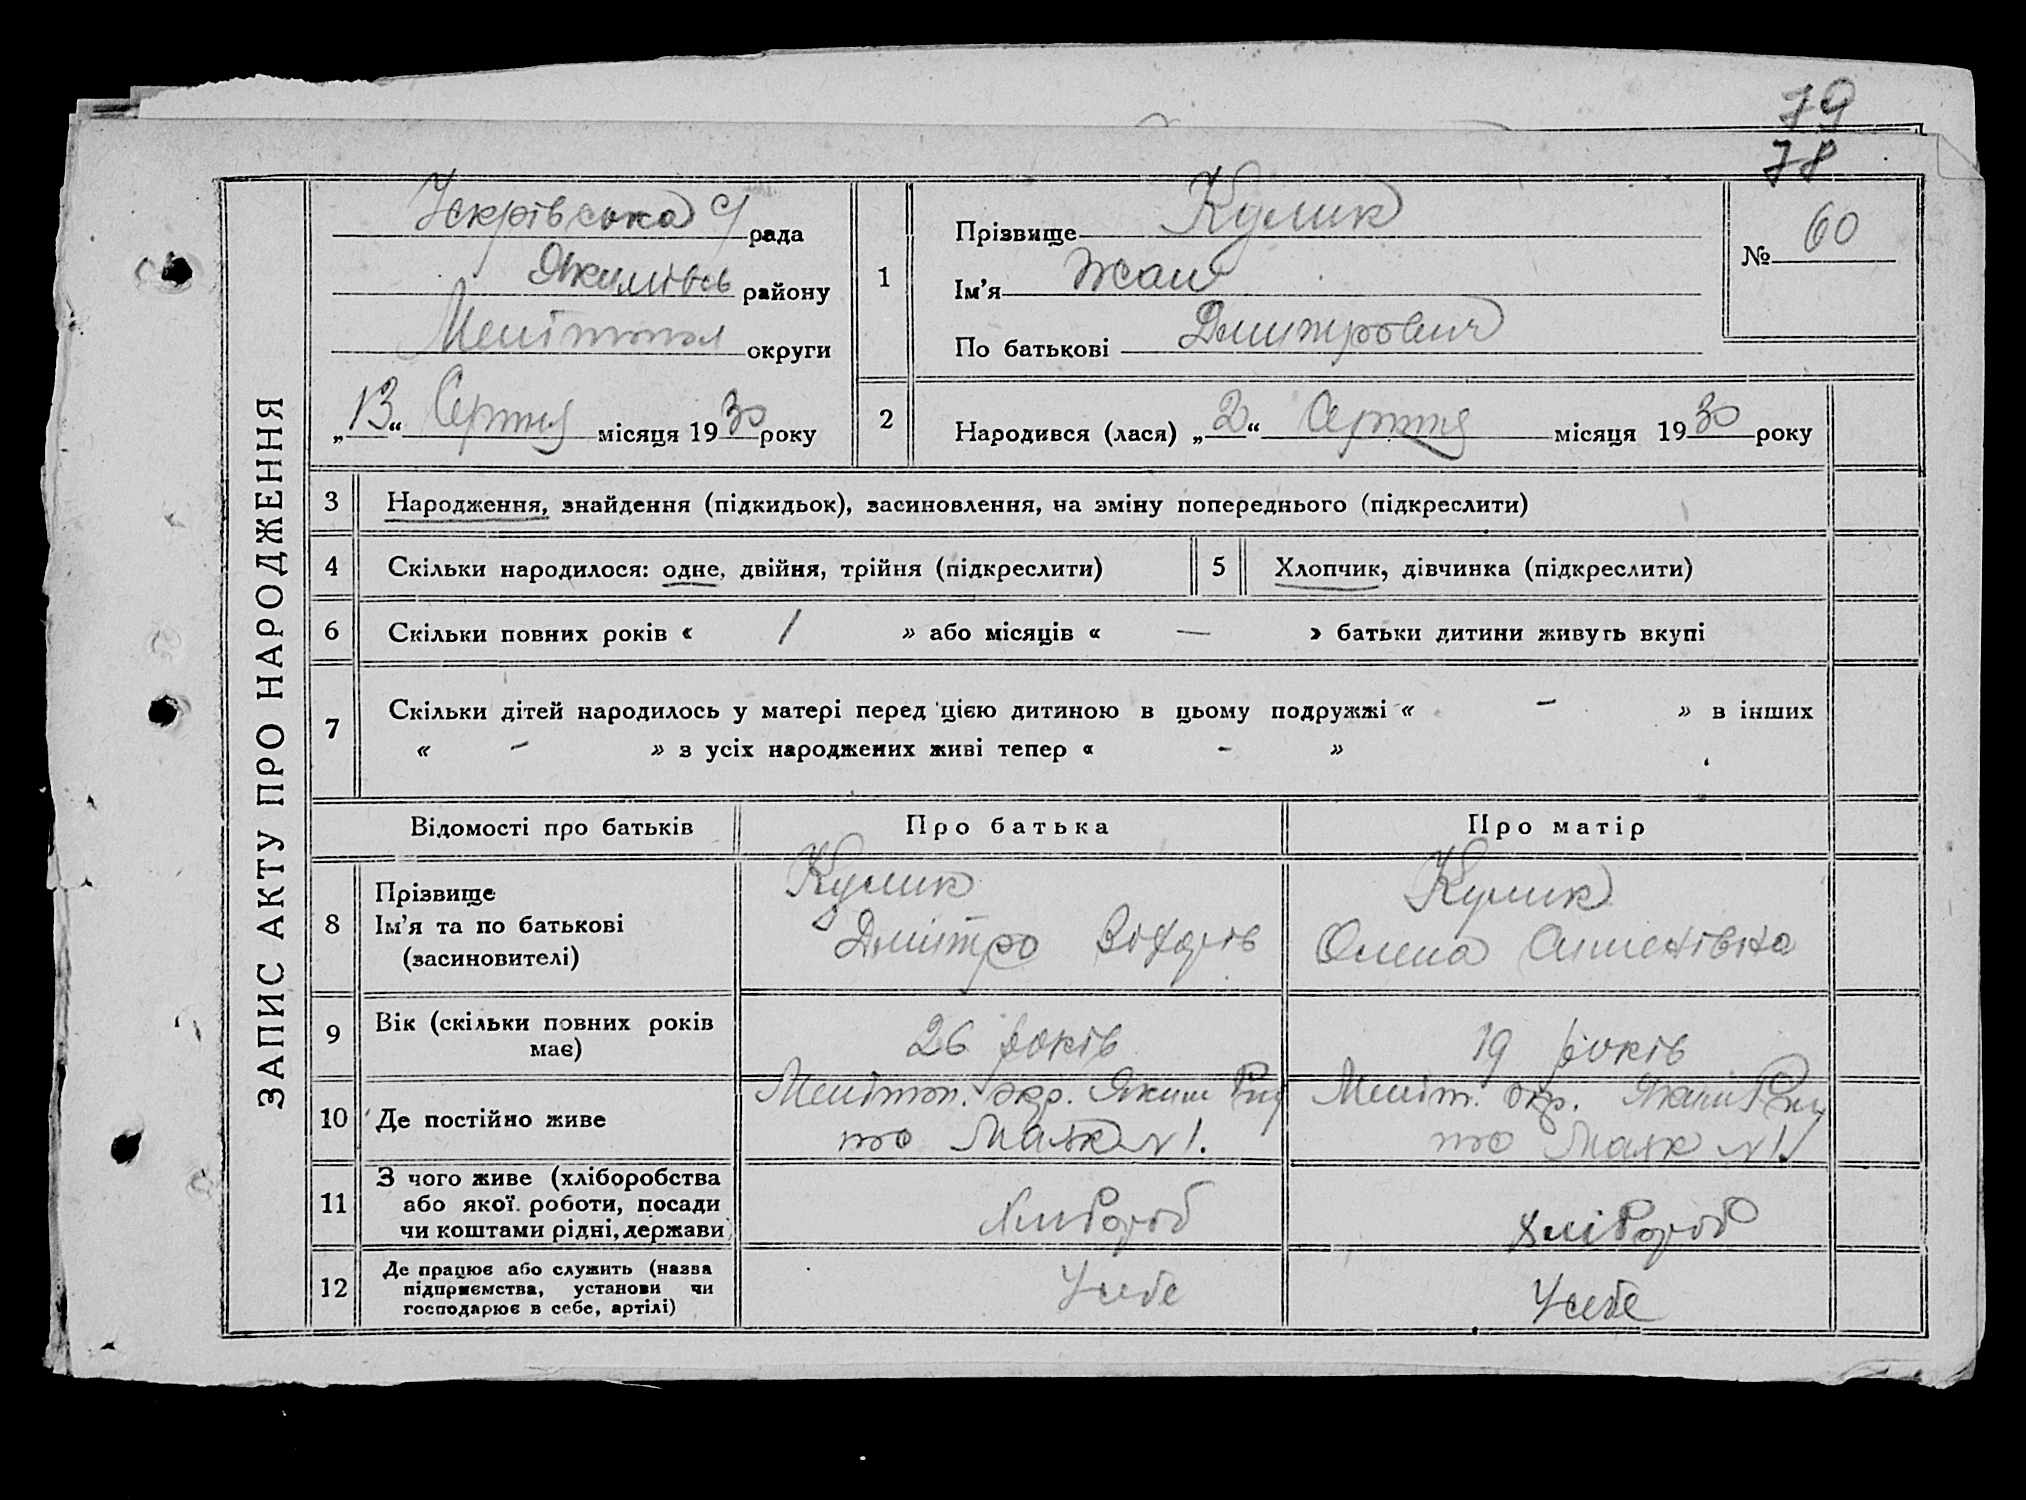 79
78
ЗАПИС АКТУ ПРО НАРОДЖЕННЯ
Іскрівська с/рада
Якимівсь району
Мелітопол округи
„13“ Серпня місяця 1930 року
1
Прізвище Кулик
Ім’я Жан
По батькові Дмитрович
№ 60
2
Народився (лася) „2“ Серпня місяця 1930 року
3 Народження, знайдення (підкидьок), засиновлення, на зміну попереднього (підкреслити)
4 Скільки народилося: одне, двійня, трійня (підкреслити)
5 Хлопчик, дівчинка (підкреслити)
6 Скільки повних років « 1 » або місяців « — » батьки дитини живуть вкупі
7 Скільки дітей народилось у матері перед цією дитиною в цьому подружжі « - » в інших
« - » з усіх народжених живі тепер « - »
Відомості про батьків Про батька Про матір
8 Прізвище
Ім’я та по батькові
(засиновителі)
Кулик
Дмітро
Кулик
Олена
9 Вік (скільки повних років
має)
26 років
19 років
10 Де постійно живе
Меліт. окр. Яким Рну
то Маяк N 1.
Меліт. окр. Яким Рну
то Маяк N 1
11 З чого живе (хліборобства
або якої роботи, посади
чи коштами рідні, держави)
Хлібороб
Хлібороб
12 Де працює або служить (назва
підприємства, установи чи
господарює в себе, артілі)
У себе
У себе